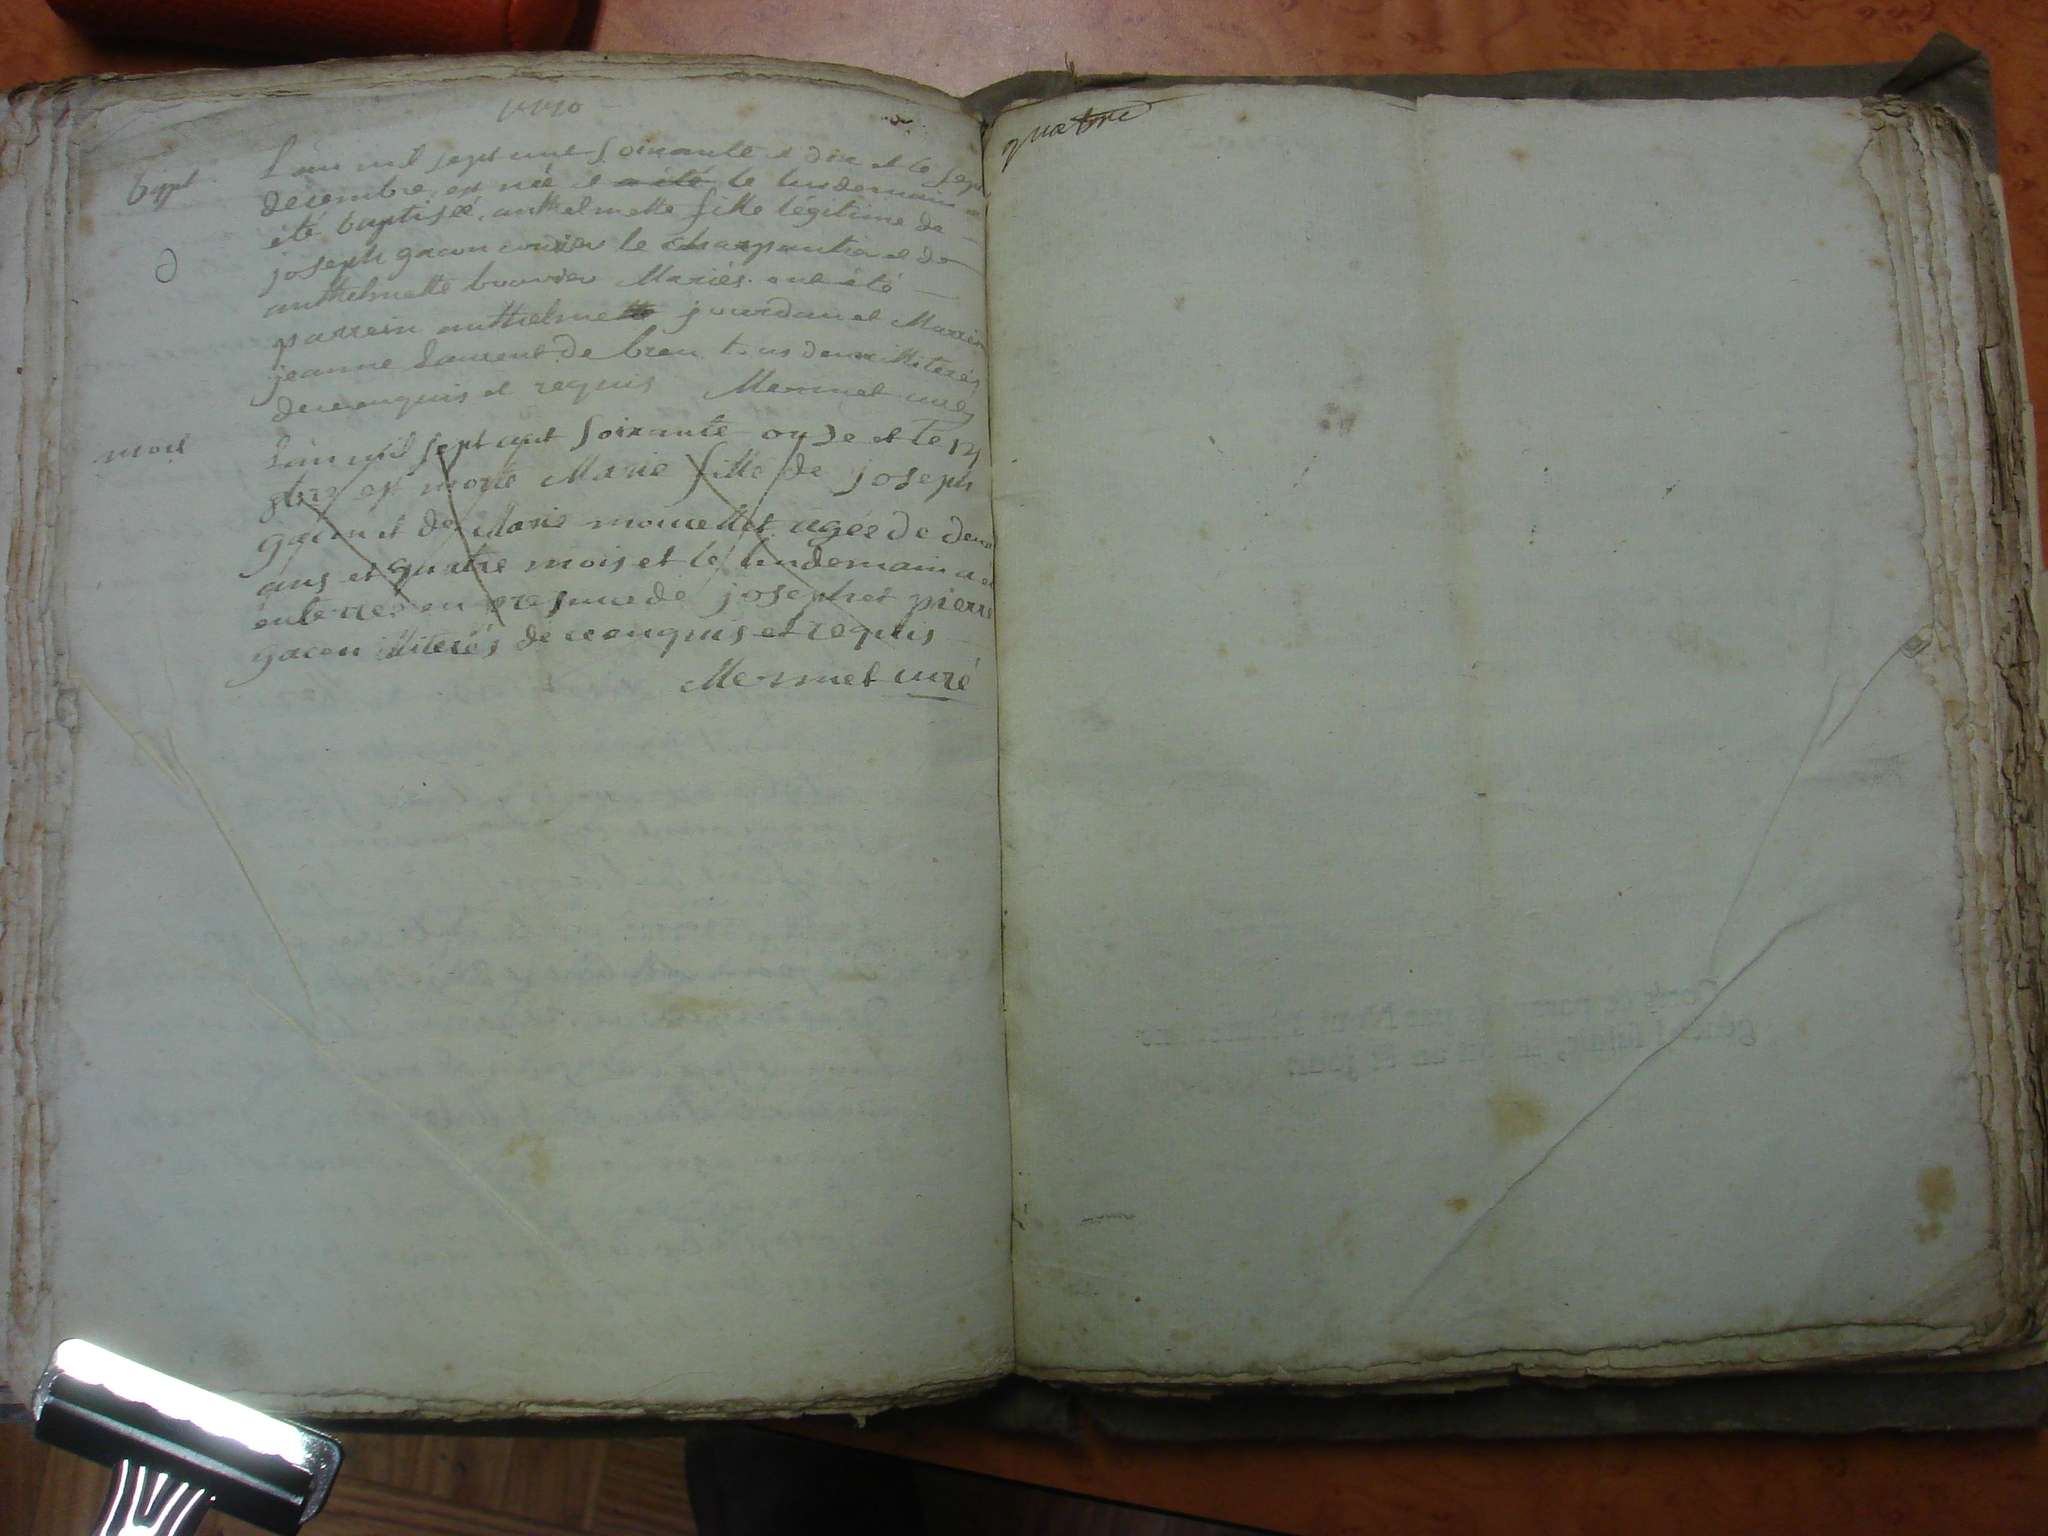 1770
bapt
L'an mil sept cent soixante et dix et le sept
decembre, est née et a été le lendemain a
été baptiséé, anthelmette fille légitime de
joseph gacon cuvier le charpantier et de
anthelmette bouvier Mariés. ont été
parrein anthelme jourdan et Marrein
jeanne Laurent de bren tous deux illiterés
de ce enquis et requis Mermet curé
mort
L'an mil sept cent soixante onze et le 12
9bre est morte Marie fille de joseph
gacon et de Marie moucellet, agéé de deux
ans et quatre mois et le lendemain a eté
enterréé en presence de joseph et pierre
gacon illiterés de ce enquis et requis
Mermet curé
quatre